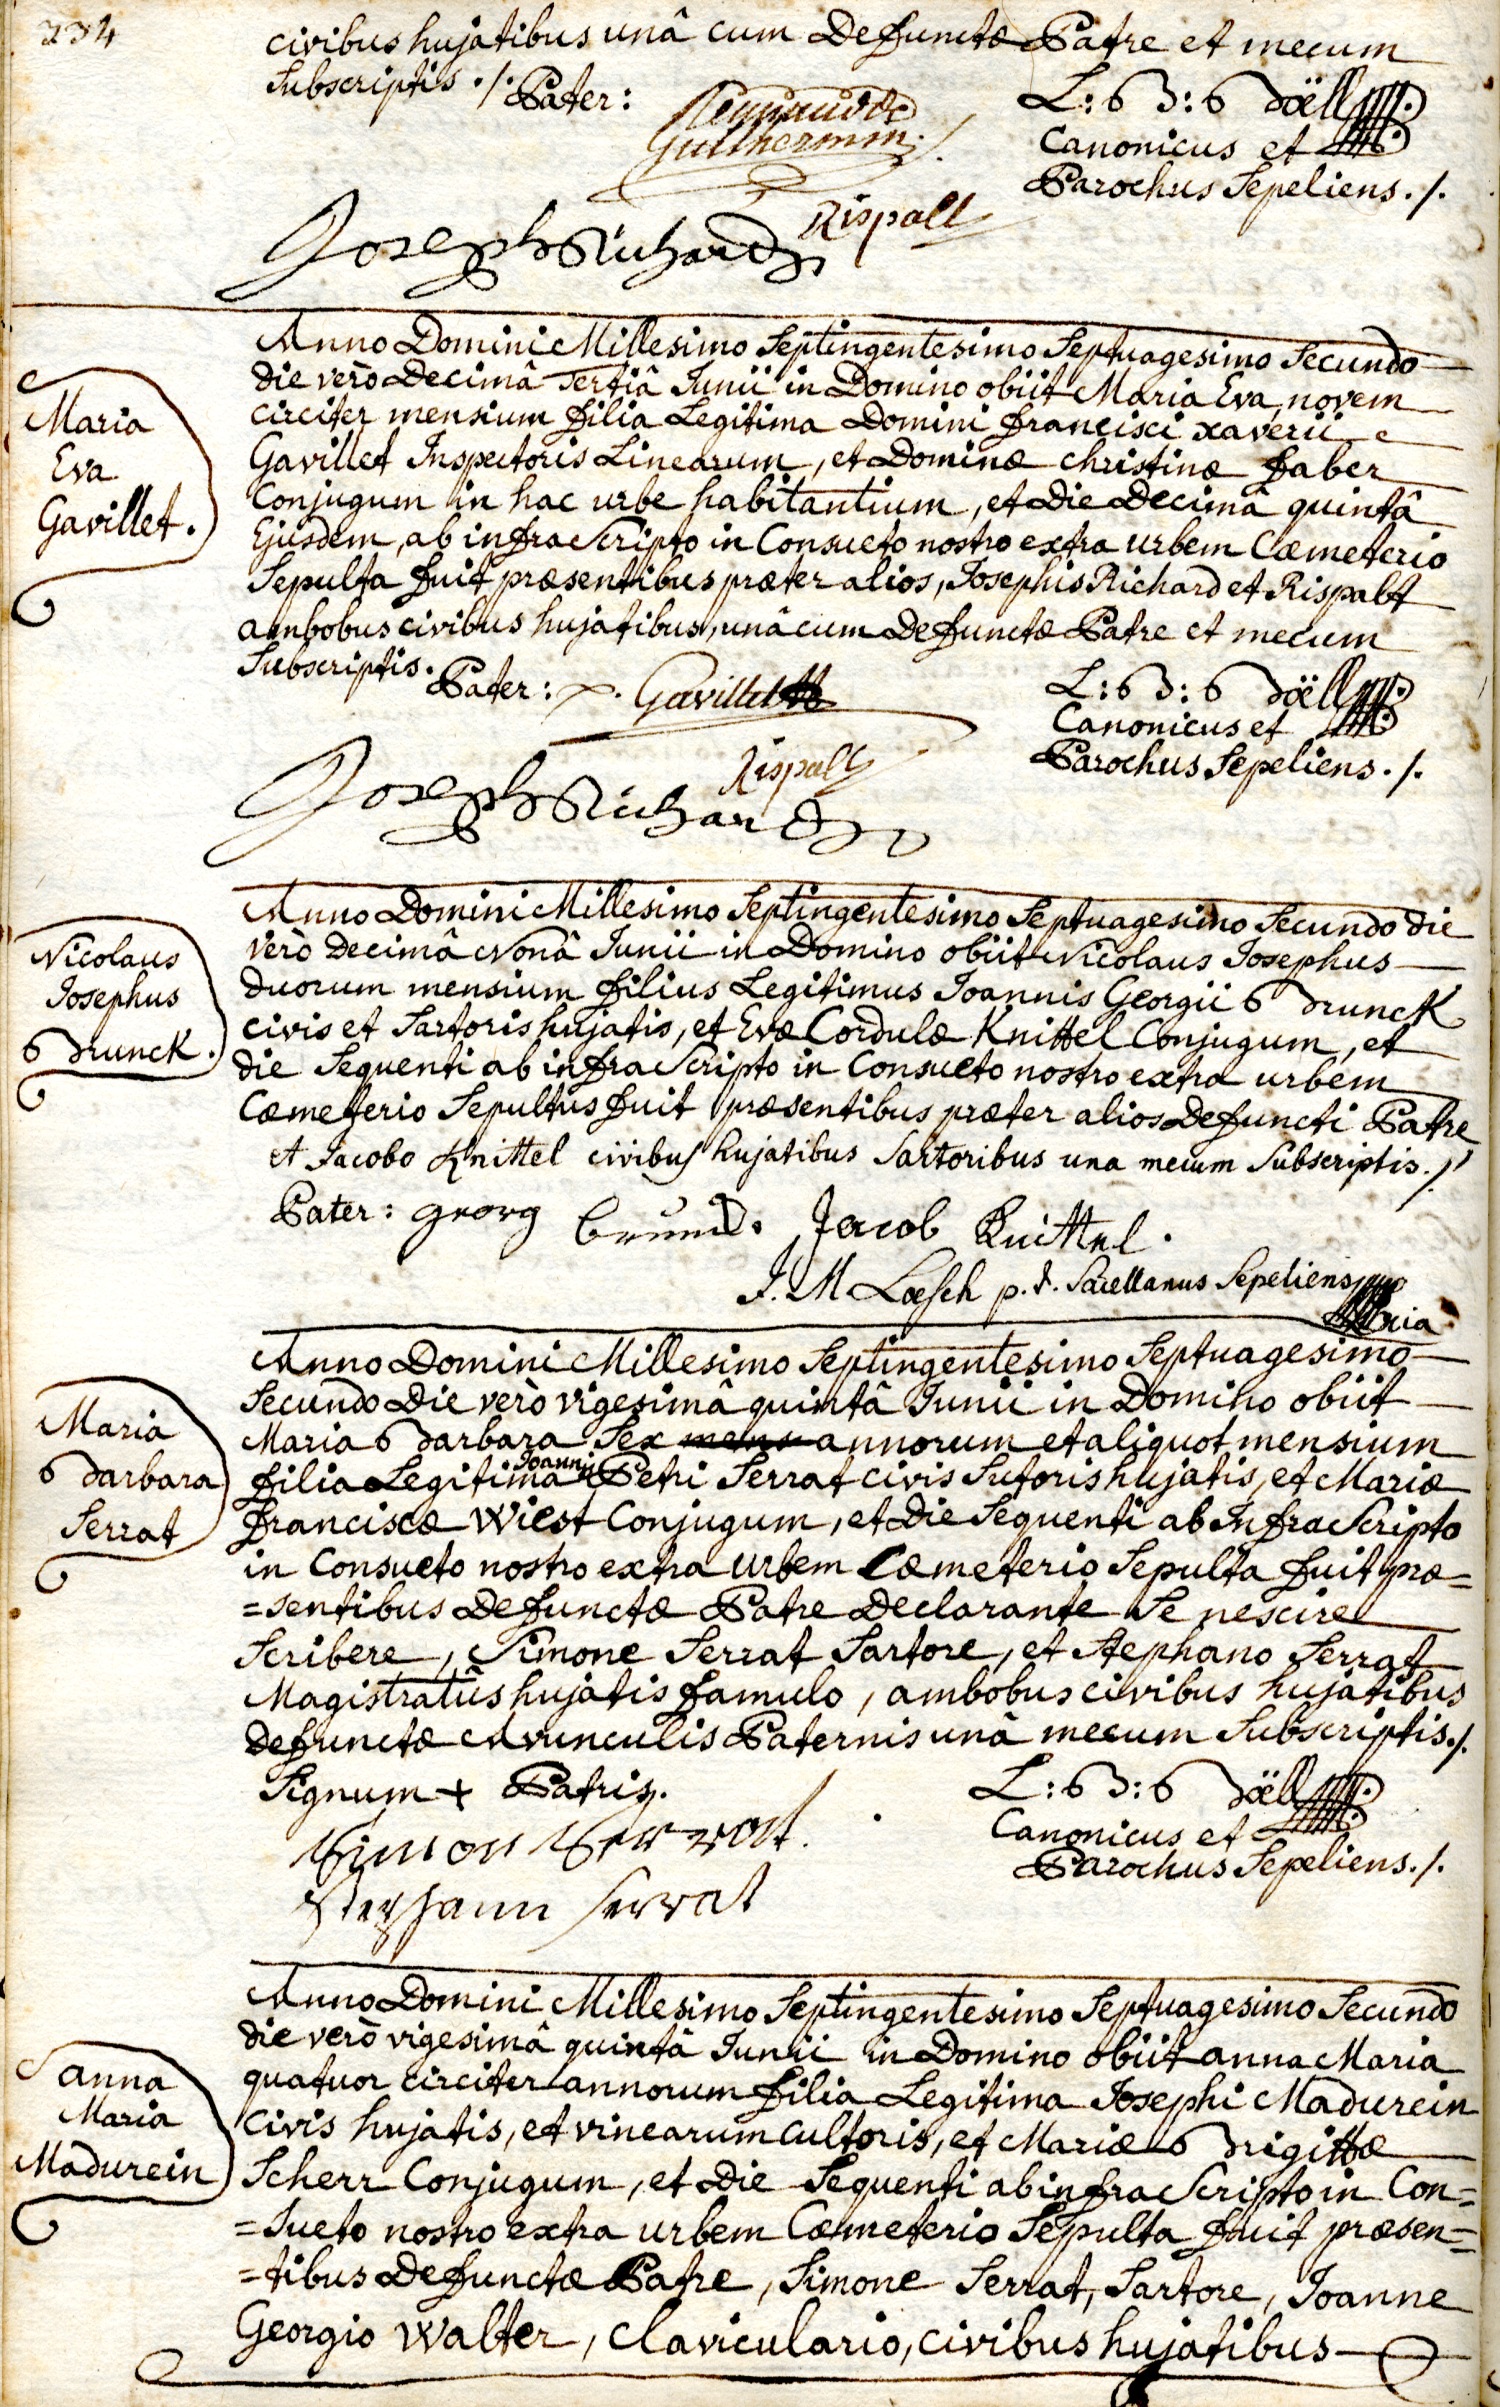 234
civibus hujatibus unâ cum Defunctæ Patre et mecum
Subscriptis ./. Pater:
L: B: Böell
Canonicus et
Parochus Sepeliens ./.
Rispall
Joseph Richard
Maria
Eva
Gavillet.
Anno Domini Millesimo Septingentesimo Septuagesimo Secundo
die verò Decimâ Tertiâ Junii in Domino obiit Maria Eva novem
circiter mensium filia Legitima Domini francisci xaverii
Gavillet Inspectoris Linearum, et Dominæ christinæ faber
Conjugum in hac urbe habitantium, et Die Decimâ quintâ
Ejusdem, ab infra Scripto in Consueto nostro extra urbem Cœmeterio
Sepulta fuit præsentibus præter alios, Josephis Richard et Rispalt
ambobus civibus hujatibus, unâ cum Defunctæ Patre et mecum
Subscriptis.
Pater: Gavillet
L: B: Böell
Canonicus et
Parochus Sepeliens ./.
Rispall
Joseph Richard
Nicolaus
Josephus
Brunck.
Anno Domini Millesimo Septingentesimo Septuagesimo Secundo die
verò Decimâ Nonâ Junii in Domino obiit Nicolaus Josephus
duorum mensium filius Legitimus Joannis Georgii Brunck
civis et Sartoris hujatis, et Evæ Cordulæ Knittel Conjugum, et
die Sequenti ab infra Scripto in Consueto nostro extra urbem
Cœmeterio Sepultus fuit præsentibus præter alios Defuncti Patre
et Jacobo Knittel civibus hujatibus Sartoribus una mecum Subscriptis ./.
Pater: georg brunck. Jacob Knittel.
J. M Lœsch p. t. Sacellanus Sepeliens
Maria
Barbara
Serrat
Anno Domini Millesimo Septingentesimo Septuagesimo
Secundo Die verò vigesimâ quintâ Junii in Domino obiit
Maria Barbara Sex mens annorum et aliquot mensium
filia Legitima Joannis Petri Serrat civis Sutoris hujatis, et Mariæ
franciscæ Wiest Conjugum, et Die Sequenti ab Infra Scripto
in Consueto nostro extra urbem Cœmeterio Sepulta fuit præ=
=sentibus Defunctæ Patre Declarante Se nescire
Scribere, Simone Serrat Sartore, et Stephano Serrat
Magistratûs hujatis famulo, ambobus civibus hujatibus
Defunctæ Avunculis Paternis unâ mecum Subscriptis ./.
Signum + Patris.
L: B: Böell
Canonicus et
Parochus Sepeliens ./.
Simon Serrat.
Stephann Serrat
anna
Maria
Madurein
Anno Domini Millesimo Septingentesimo Septuagesimo Secundo
die verò vigesimâ quintâ Junii in Domino obiit anna Maria
quatuor circiter annorum filia Legitima Josephi Madurein
Civis hujatis, et vinearum cultoris, et Mariæ Brigittæ
Scherr Conjugum, et Die Sequenti ab infra Scripto in Con=
=sueto nostro extra urbem Cœmeterio Sepulta fuit præsen=
=tibus Defunctæ Patre, Simone Serrat, Sartore, Joanne
Georgio Walter, Claviculario, civibus hujatibus